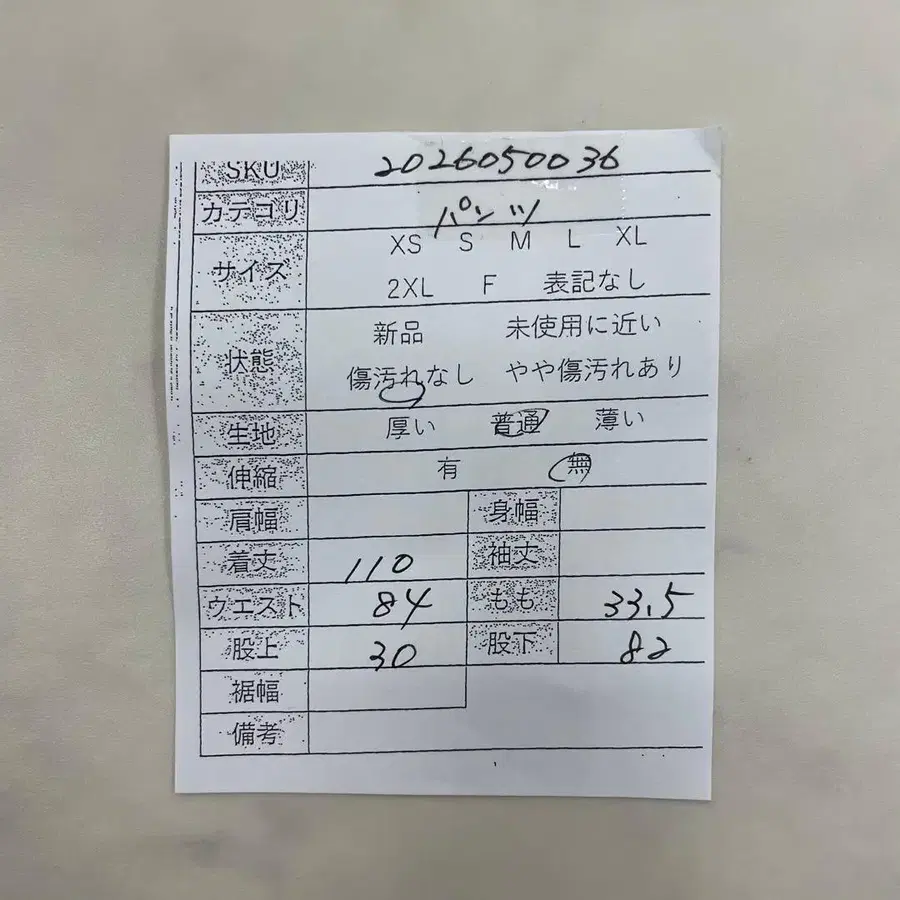 SKU 20260500036
カテゴリ パンツ
サイズ XS S M L XL
2XL F 表記なし
状態 新品 未使用に近い
傷汚れなし やや傷汚れあり
生地 厚い 普通 薄い
伸縮 有 無
肩幅 身幅
着丈 110 袖丈
ウエスト 84 もも 33.5
股上 30 股下 82
裾幅
備考